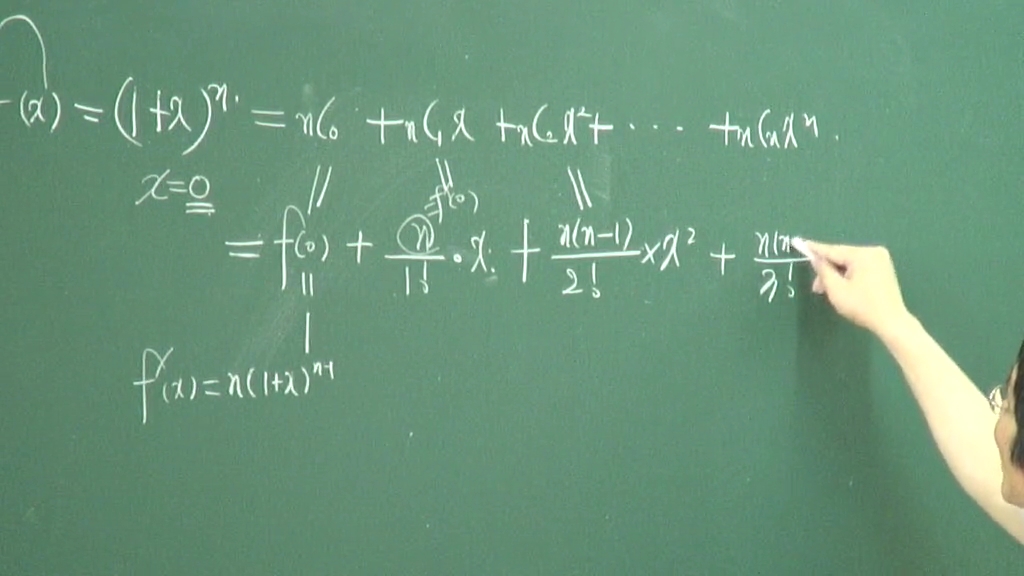 f(x) = (1+x)ⁿ. = nC₀ + nC₁x + nC₂x² + ··· + nCₙxⁿ.
x=0 || || ||
f'(0)
= f(0) + n/1! · x. + n(n-1)/2! × x² + n(n/3!
||
1
f'(x) = n(1+x)ⁿ⁻¹